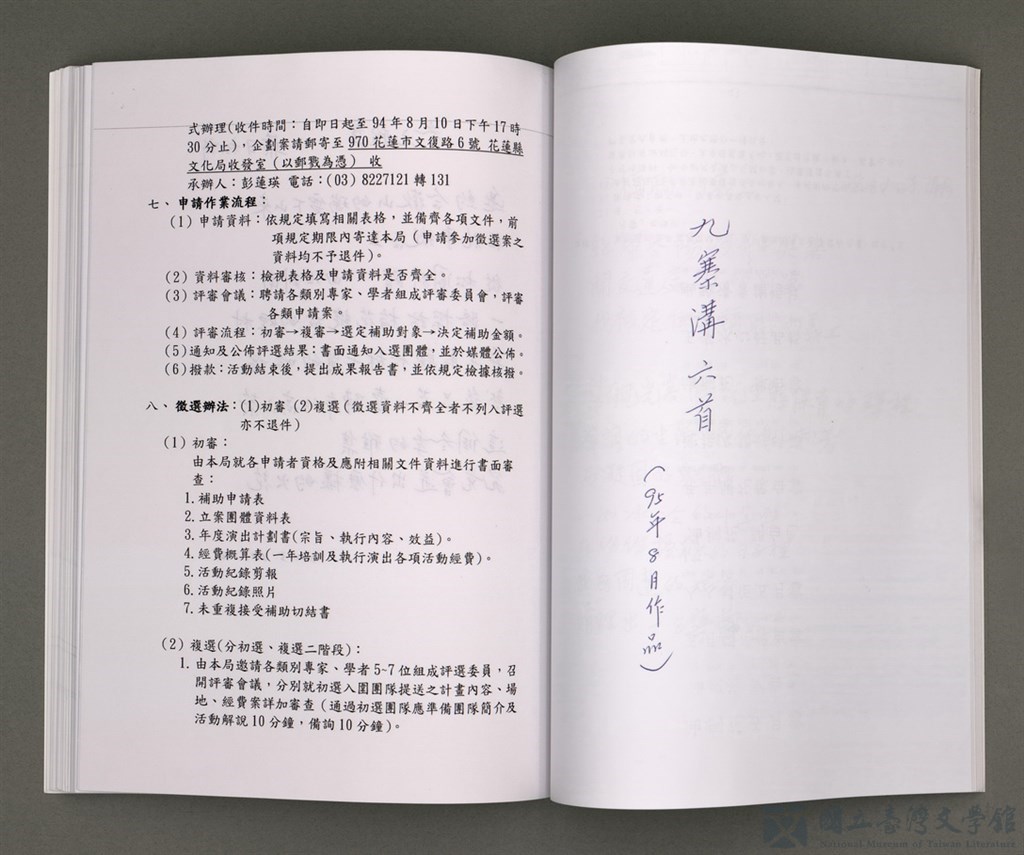 式辦理(收件時間：自即日起至 94 年 8 月 10 日下午 17 時
30 分止)，企劃案請郵寄至 970 花蓮市文復路 6 號 花蓮縣
文化局收發室（以郵戳為憑） 收
承辦人：彭蓮瑛 電話：(03) 8227121 轉 131
七、申請作業流程：
(1) 申請資料：依規定填寫相關表格，並備齊各項文件，前
項規定期限內寄達本局（申請參加徵選案之
資料均不予退件）。
(2) 資料審核：檢視表格及申請資料是否齊全。
(3) 評審會議：聘請各類別專家、學者組成評審委員會，評審
各類申請案。
(4) 評審流程：初審→複審→選定補助對象→決定補助金額。
(5) 通知及公佈評選結果：書面通知入選團體，並於媒體公佈。
(6) 撥款：活動結束後，提出成果報告書，並依規定檢據核撥。
八、徵選辦法：(1)初審 (2)複選(徵選資料不齊全者不列入評選
亦不退件)
(1) 初審：
由本局就各申請者資格及應附相關文件資料進行書面審
查：
1. 補助申請表
2. 立案團體資料表
3. 年度演出計劃書(宗旨、執行內容、效益)。
4. 經費概算表(一年培訓及執行演出各項活動經費)。
5. 活動紀錄剪報
6. 活動紀錄照片
7. 未重複接受補助切結書
(2) 複選(分初選、複選二階段)：
1. 由本局邀請各類別專家、學者 5~7 位組成評選委員，召
開評審會議，分別就初選入圍團隊提送之計畫內容、場
地、經費案詳加審查（通過初選團隊應準備團隊簡介及
活動解說 10 分鐘，備詢 10 分鐘）。
九寨溝六首
(95年8月作品)
國立臺灣文學館
National Museum of Taiwan Literature